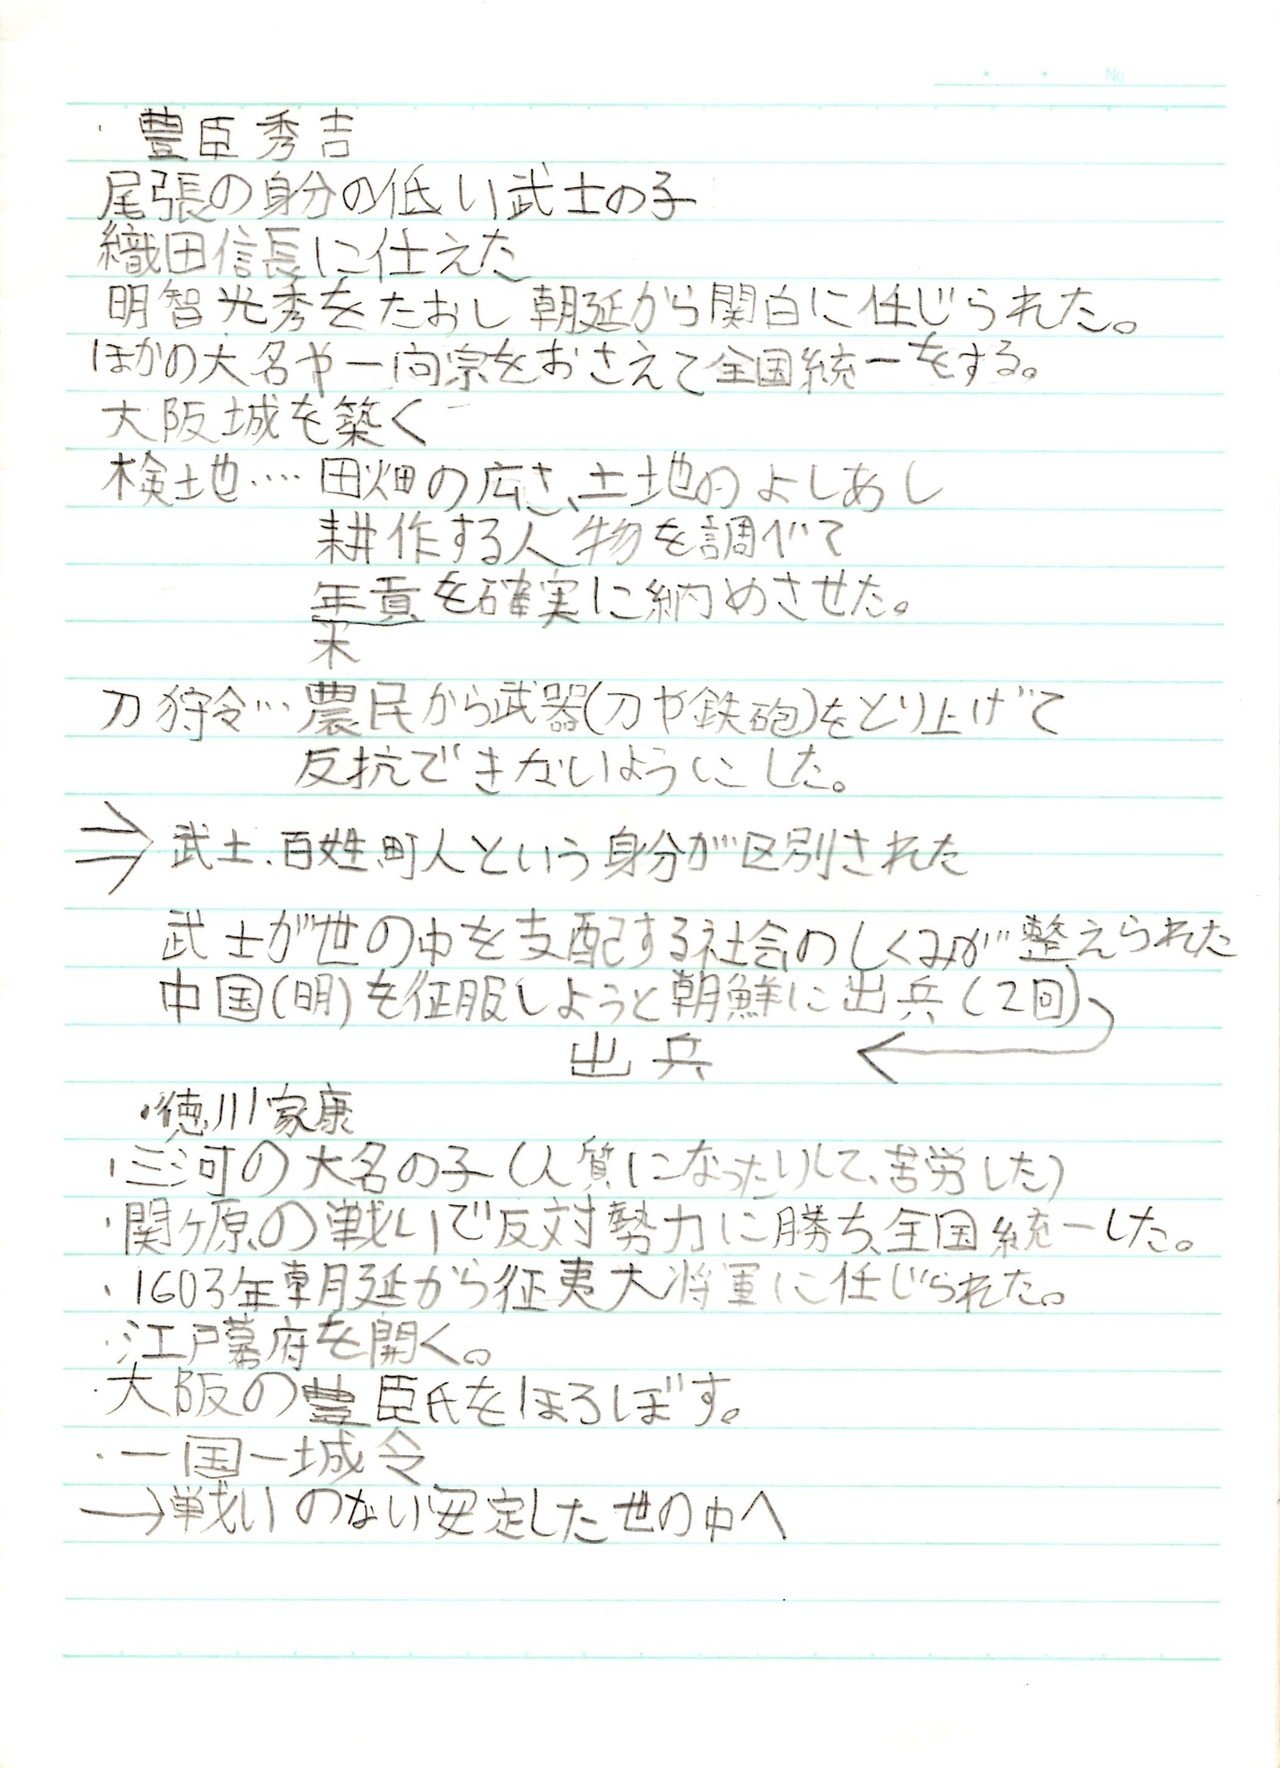 No
・豊臣秀吉
尾張の身分の低い武士の子
織田信長に仕えた
明智光秀をたおし朝廷から関白に任じられた。
ほかの大名や一向宗をおさえて全国統一をする。
大阪城を築く
検土地‥‥田畑の広さ、土地のよしあし
耕作する人物を調べて
年貢を確実に納めさせた。
米
刀狩令…農民から武器(刀や鉄砲)をとり上げて
反抗できないようにした。
⇒武士、百姓、町人という身分が区別された
武士が世の中を支配する社会のしくみが整えられた
中国(明)を征服しようと朝鮮に出兵(2回)
出兵 ←
・徳川家康
・三河の大名の子(人質になったりして、苦労した)
・関ヶ原の戦いで反対勢力に勝ち、全国統一した。
・1603年朝廷から征夷大将軍に任じられた。
・江戸幕府を開く。
・大阪の豊臣氏をほろぼす。
・一国一城令
→戦いのない安定した世の中へ